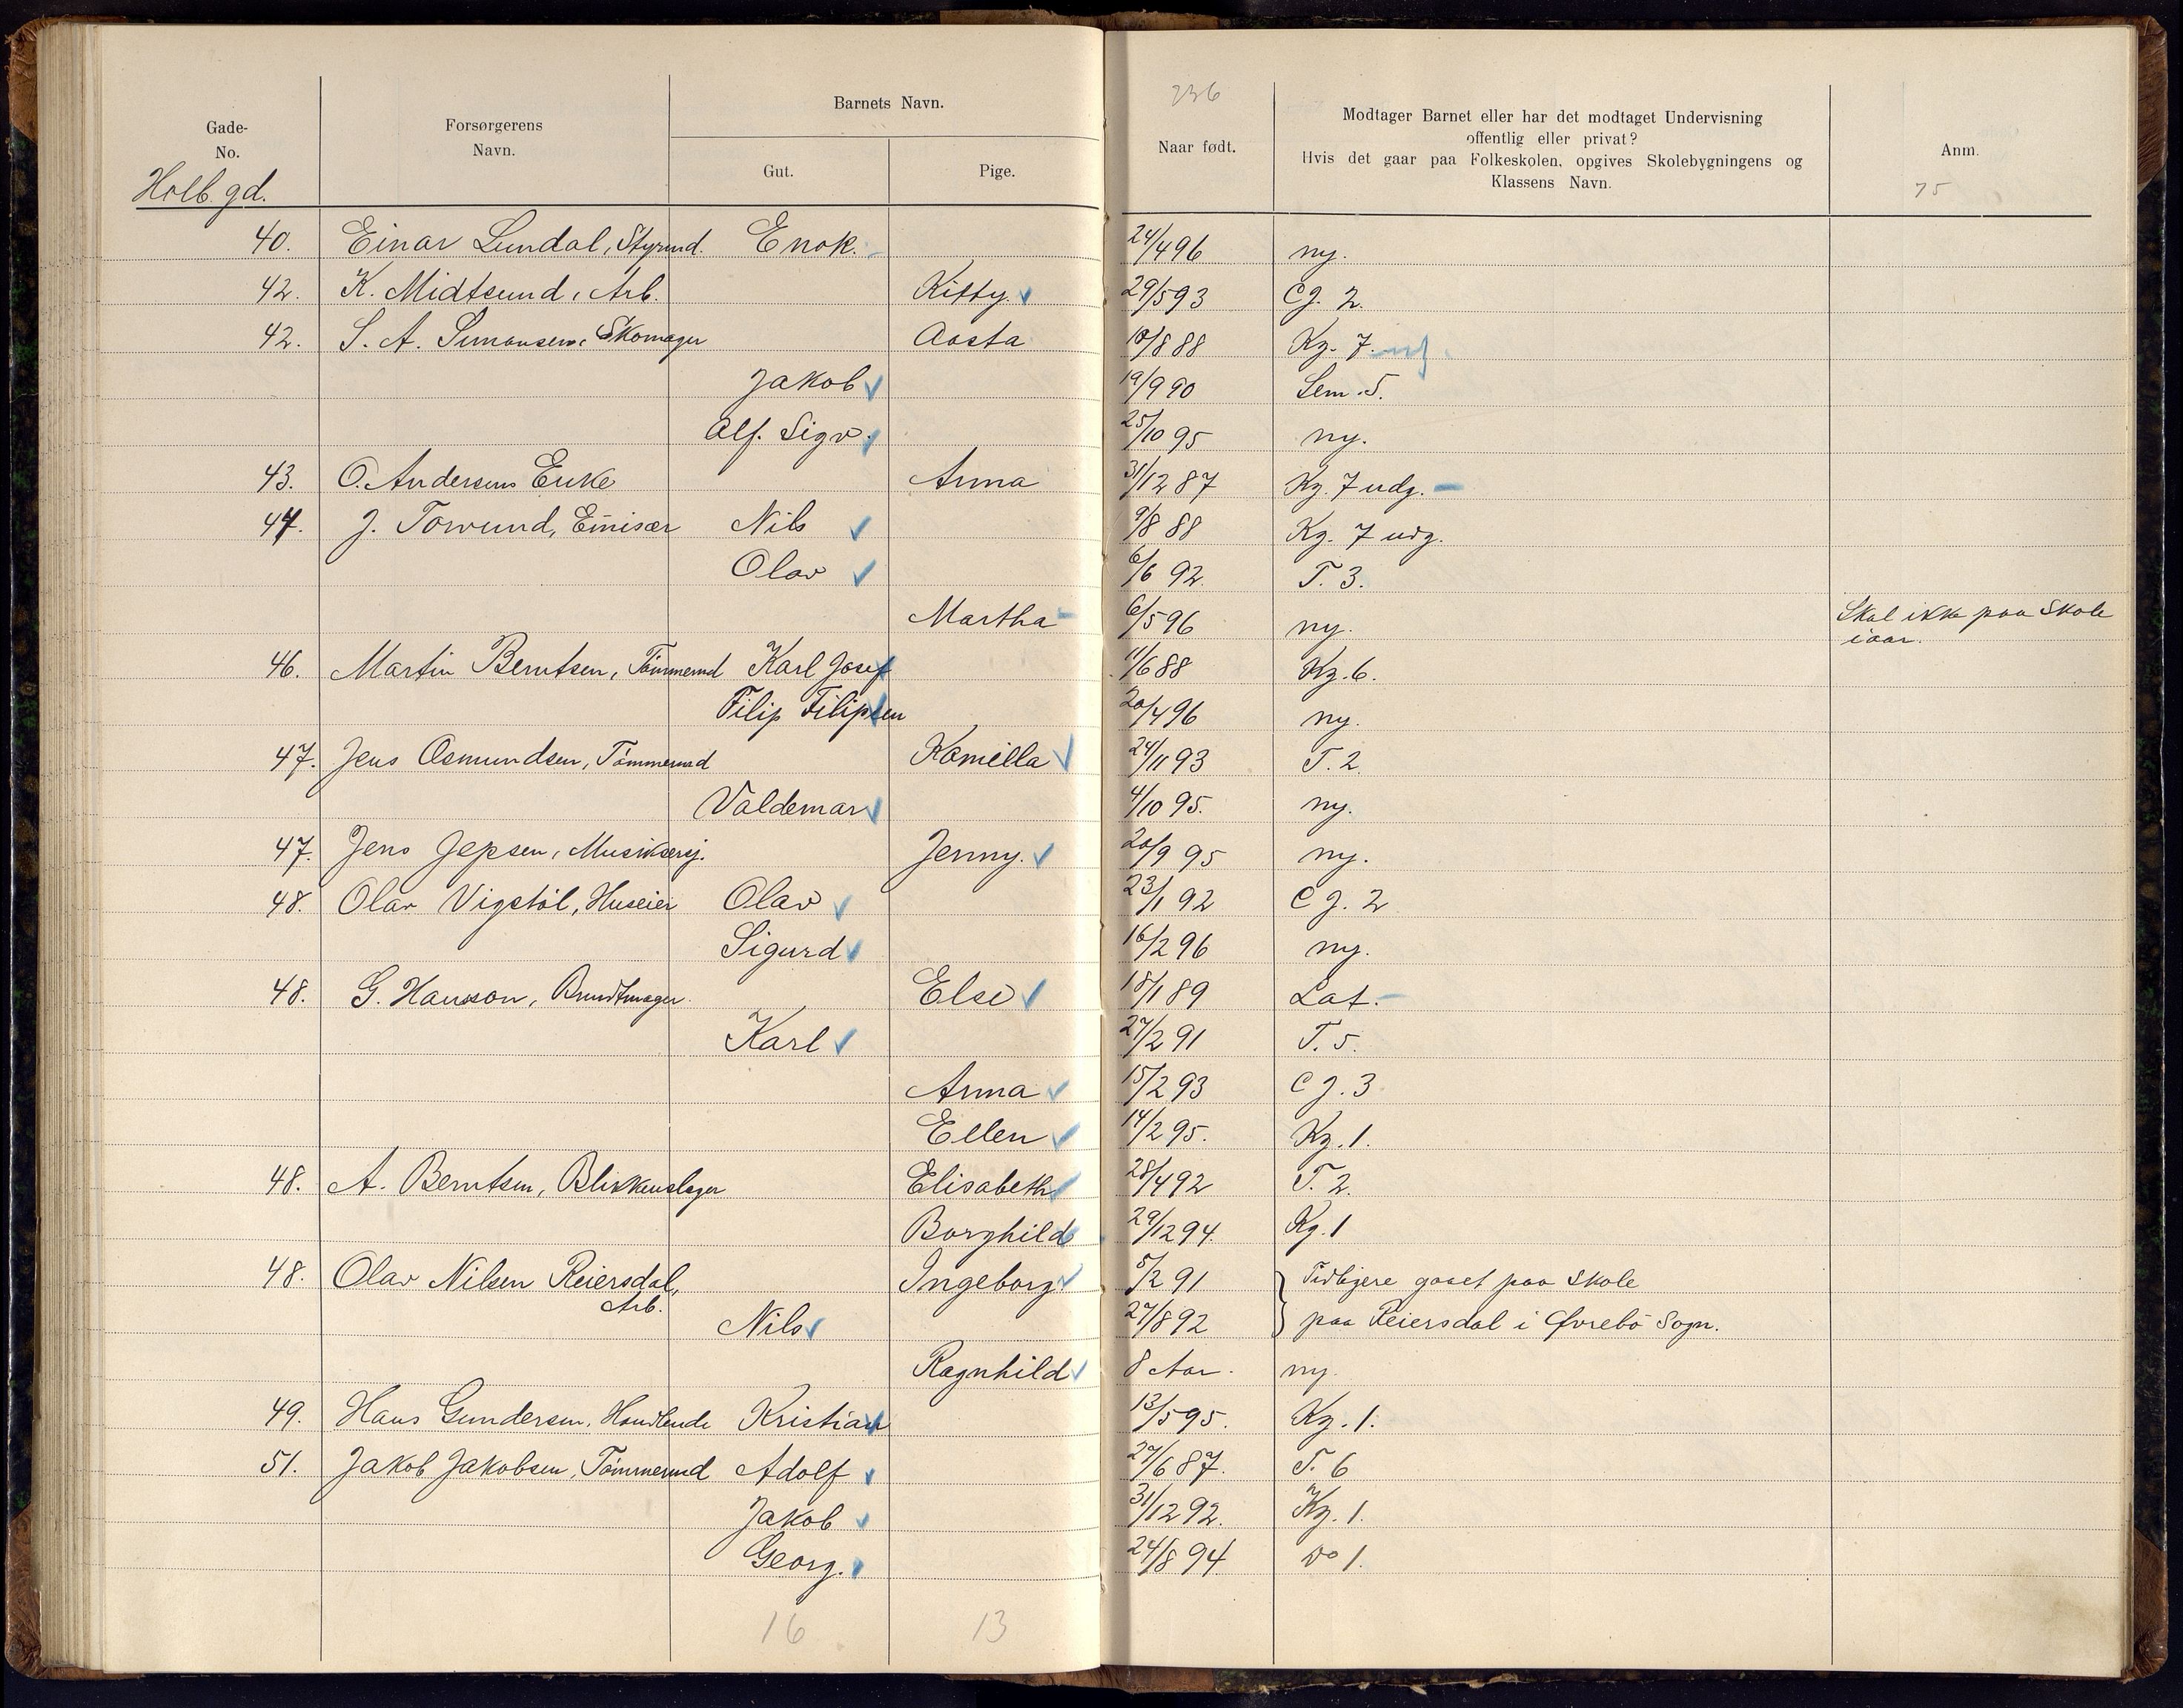 Gade-
No.
Forsørgerens
Navn.
Barnets Navn.
Gut.
Pige.
236
Naar født.
Modtager Barnet eller har det modtaget Undervisning
offentlig eller privat?
Hvis det gaar paa Folkeskolen, opgives Skolebygningens og
Klassens Navn.
Anm.
75
Holb.gd.
40. Einar Lundal, Styrmd. Enok. 24/4 96 ny.
42. K. Midtsund, Arb. Kitty. 29/5 93 Cg. 2.
42. S. A. Simonsen, Skomager Aasta 10/8 88 Kg. 7.
Jakob 19/9 90 Sem. 5.
Alf. Sigv. 25/10 95 ny.
43. O. Andersens Enke Anna 31/12 87 Kg. 7 udg.
44. J. Torvund, Emisær Nils 9/8 88 Kg. 7 udg.
Olav 6/6 92. T. 3.
Martha 6/5 96 ny. Skal ikke paa Skole
iaar.
46. Martin Berntsen, Tömmermd Karl Josef 11/6 88 Kg. 6.
Filip Filipsen 20/4 96 ny.
47. Jens Osmundsen, Tömmermd Kamilla 24/11 93 T. 2.
Valdemar 4/10 95. ny.
47. Jens Jepsen, Musiksersj. Jenny. 20/9 95 ny.
48. Olav Vigstöl, Huseier Olav 23/1 92 Cg. 2
Sigurd 16/2 96 ny.
48. G. Hansson, Bundtmager. Else 18/1 89 Lat.
Karl 27/2 91 T. 5.
Anna 15/2 93 Cg. 3
Ellen 14/2 95. Kg. 1.
48. A. Berntsen, Blikkenslager Elisabeth 28/4 92 T. 2.
Borghild 29/12 94. Kg. 1
48. Olav Nilsen Reiersdal, Ingeborg 5/2 91 Tidligere gaaet paa Skole
Arb.
Nils 27/8 92 paa Reiersdal i Øvrebö Sogn.
Ragnhild 8 Aar. ny.
49. Hans Gundersen, Handlende Kristian 13/5 95. Kg. 1.
51. Jakob Jakobsen, Tömmermd Adolf 27/6 87. T. 6
Jakob 31/12 92. Kg. 1.
Georg. 24/8 94 do 1.
16 13